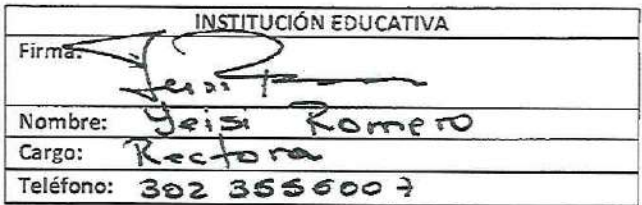 INSTITUCIÓN EDUCATIVA
Firma:
Nombre: Yeisi Romero
Cargo: Rectora
Teléfono: 302 3556007